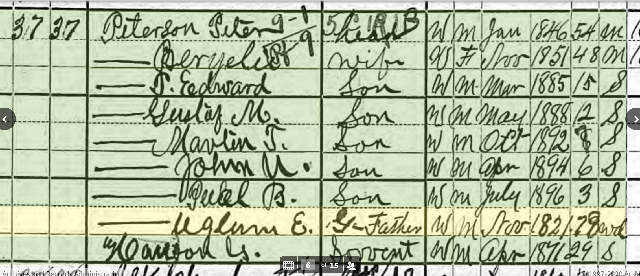 37 37 Peterson Peter Head W M Jan 1846 54 M
— wife W F Nov 1851 48 M
— P. Edward Son W M Mar 1885 15 S
— Gustaf M. Son W M May 1888 12 S
— Martin T. Son W M Oct 1892 S
— John Son W M Apr 1894 6 S
— B. Son W M July 1896 3 S
— E. G-Father W M Nov 1821 78 wd
G. Servent W M Apr 1871 29 S
6 of 15